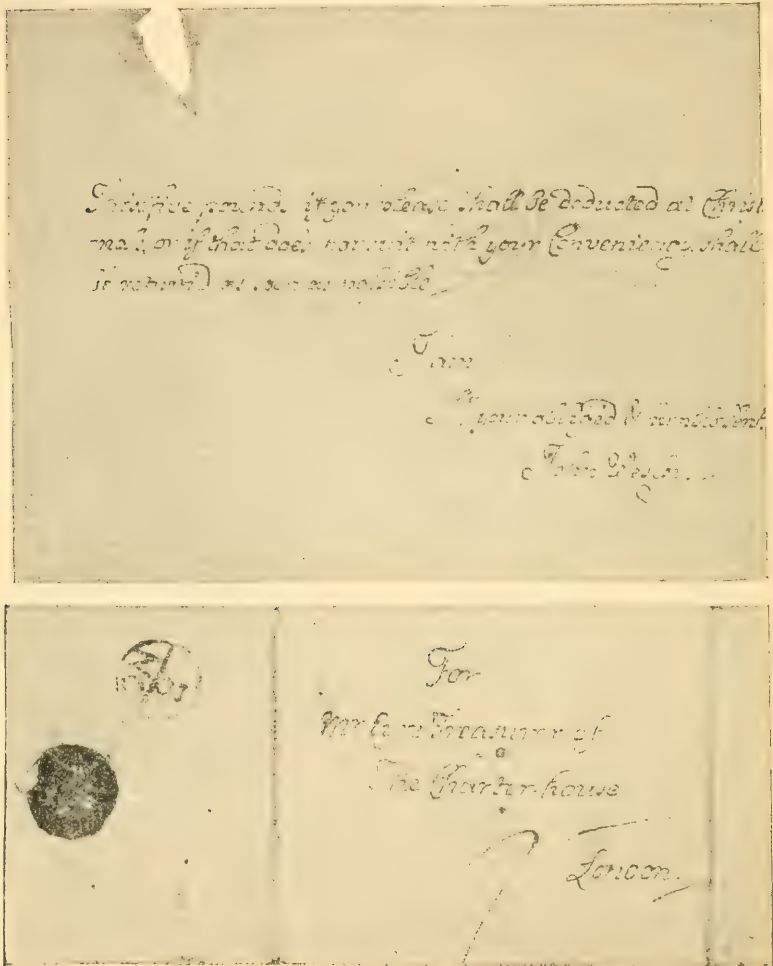 five pounds if you please shall be deducted at Christ
-mas, or if that does not suit with your Conveniency, shall
be returned as soon as possible
I am
your obliged & humble Servt
John Wesley
For
Mr Treasurer of
The Charter-house
London.